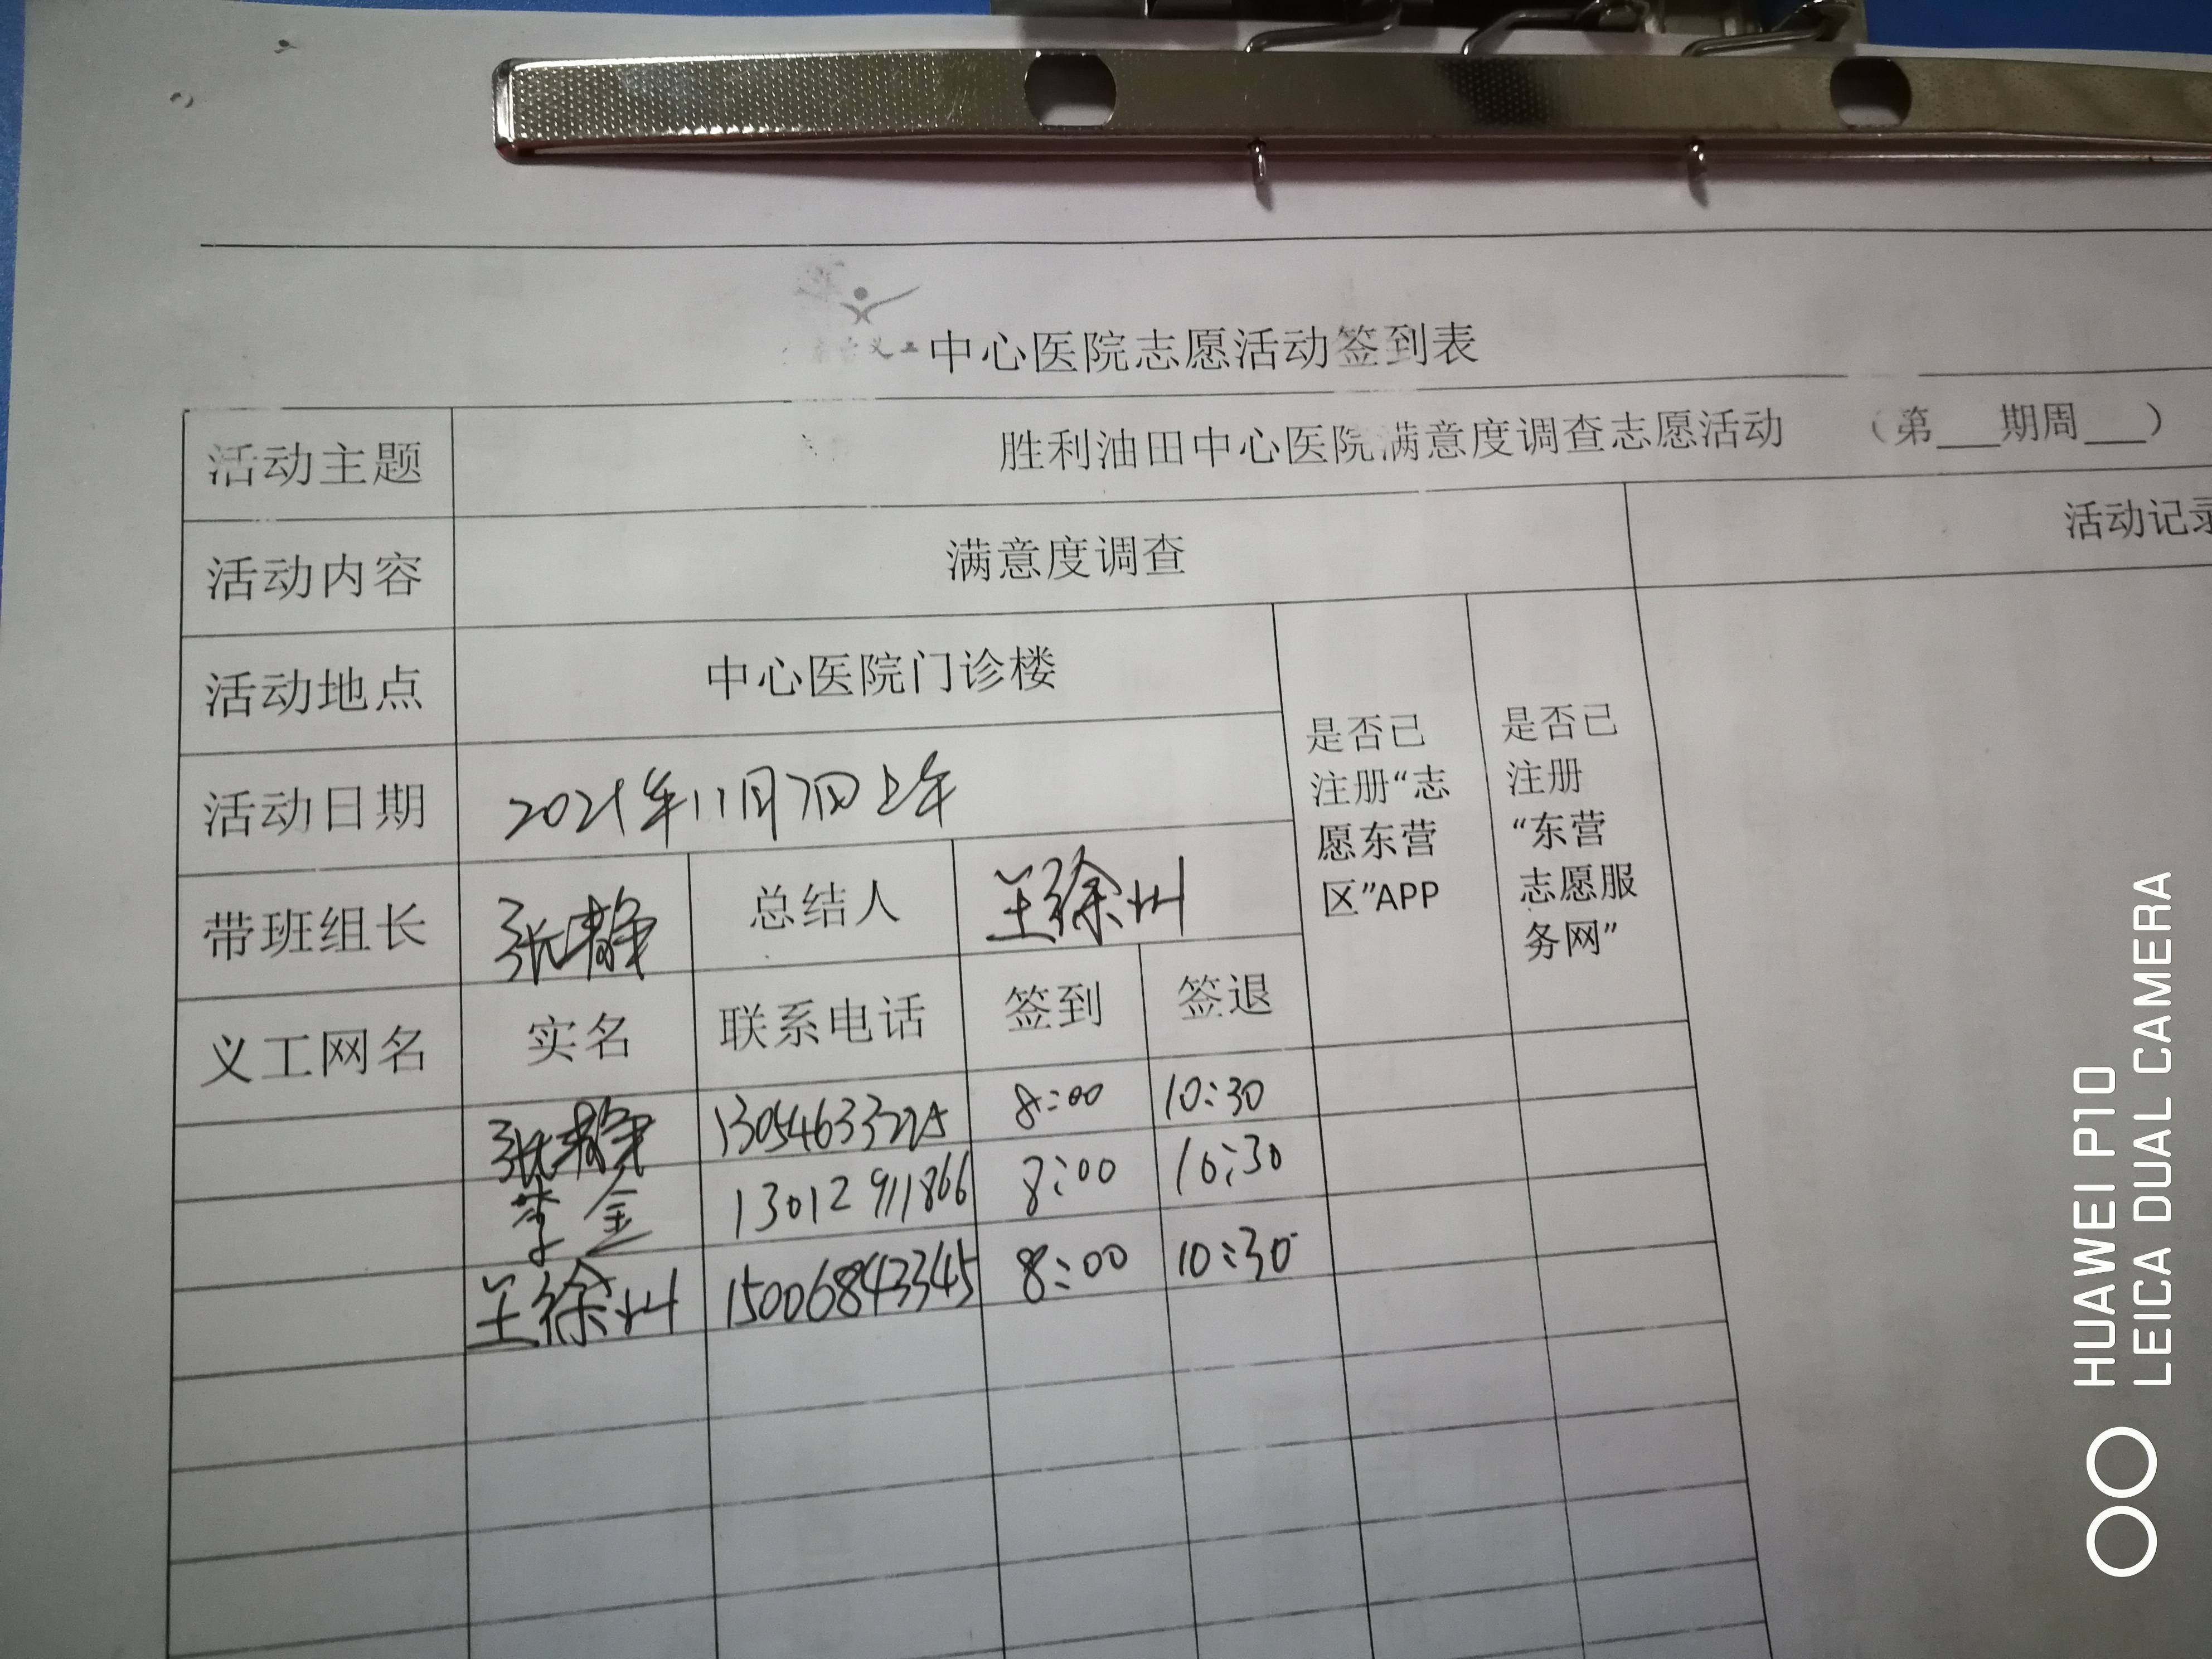 义工
中心医院志愿活动签到表
活动主题 胜利油田中心医院满意度调查志愿活动 （第___期周___）
活动内容 满意度调查 活动记录
活动地点 中心医院门诊楼
是否已注册“志愿东营区”APP
是否已注册“东营志愿服务网”
活动日期 2021年11月7日上午
带班组长 张静 总结人 王徐州
义工网名 实名 联系电话 签到 签退
张静 8:00 10:30
李金 13012911866 8:00 10:30
王徐州 15006843345 8:00 10:30
HUAWEI P10
LEICA DUAL CAMERA